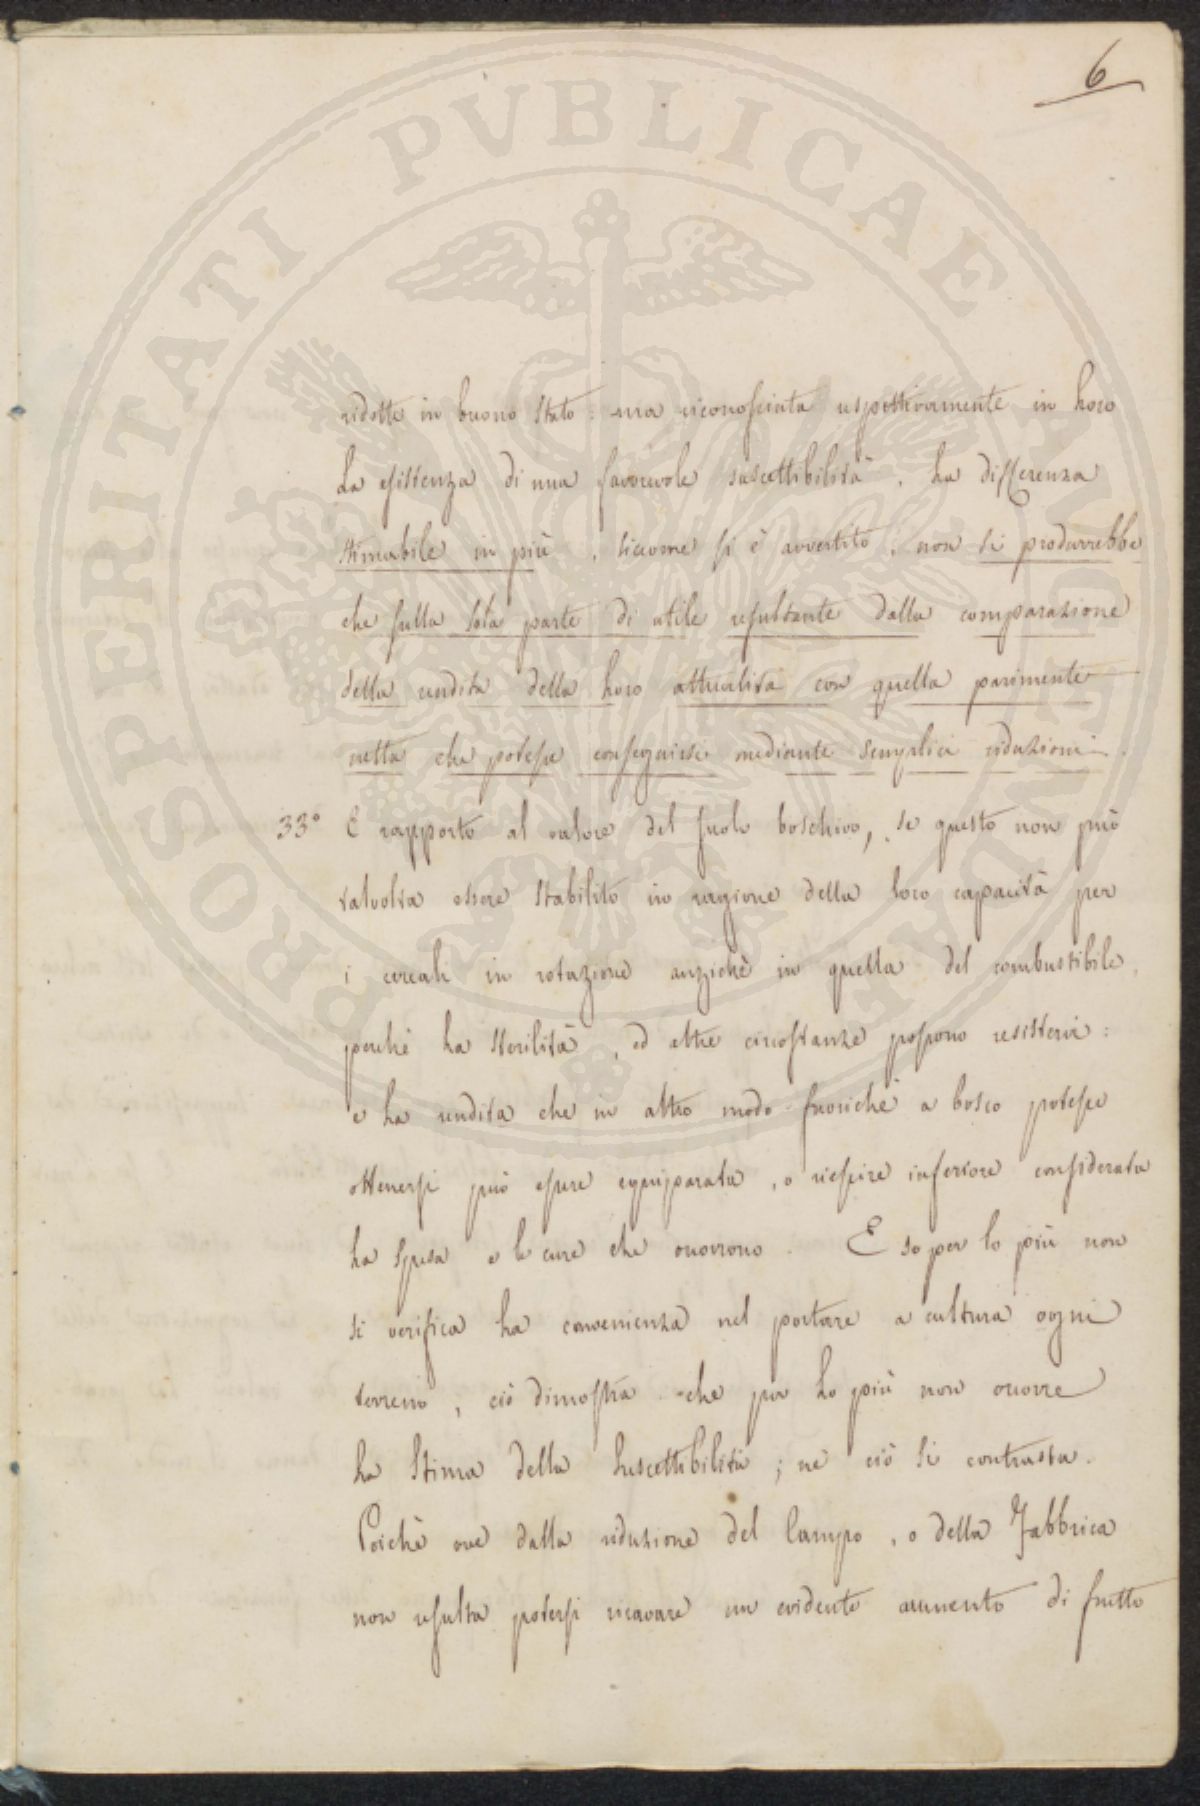 6
PROSPERITATI PVBLICAE AVGENDAE
ridotte in buono stato: ma riconosciuta respettivamente in loro
La esistenza di una favorevole suscettibilità, la differenza
stimabile in più, siccome si è avvertito, non si produrrebbe
che sulla sola parte di utile resultante dalla comparazione
della rendita della loro attualità con quella parimente
netta che potesse conseguirsi mediante semplici riduzioni.
33° E rapporto al valore del suolo boschivo, se questo non può
talvolta essere stabilito in ragione della loro capacità per
i cereali in rotazione anzichè in quella del combustibile,
perchè la sterilità, ed altre circostanze possono resistervi:
e la rendita che in altro modo fuorichè a bosco potesse
ottenersi può essere equiparata, o riescire inferiore considerata
la spesa e le cure che occorrono. E se per lo più non
si verifica la convenienza nel portare a cultura ogni
terreno, ciò dimostra che per lo più non occorre
la Stima della Suscettibilità; nè ciò si contrasta.
Poichè ove dalla riduzione del Campo, o della Fabbrica
non resulta potersi ricavare un evidente aumento di frutto